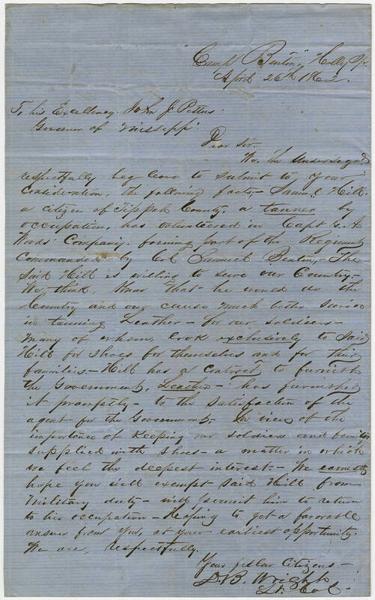 Camp "Benton" Holly Sp.
April 26th 1862.
To his Excellency John J Pettus
Governor of Mississippi
Dear Sir
We, the undersigned
respectfully beg leave to submit to your
consideration, the following facts, Samuel Hill
a citizen of Tippah County, a tanner by
occupation, has volunteered in Capt
Woods' Company, forming part of the Regiment
commanded by Col Samuel Benton, The
said Hill is willing to serve our Country
We, think, know that he would do the
Country and our cause much better service
in tanning Leather - for our soldiers -
many of whom, look exclusively to said
Hill for shoes for themselves and for their
families - Hill has a contract to furnish
the Government, Leather - has furnished
it promptly - to the satisfaction of the
agent for the Government. In view of the
importance of keeping our soldiers and families
supplied with shoes - a matter in which
we feel the deepest interest - We earnestly
hope you will exempt said Hill from
military duty - will permit him to return
to his occupation - Hoping to get a favorable
answer from you, at your earliest opportunity.
We are, respectfully
Your fellow Citizens -
D B. Wright
Lt. Col -